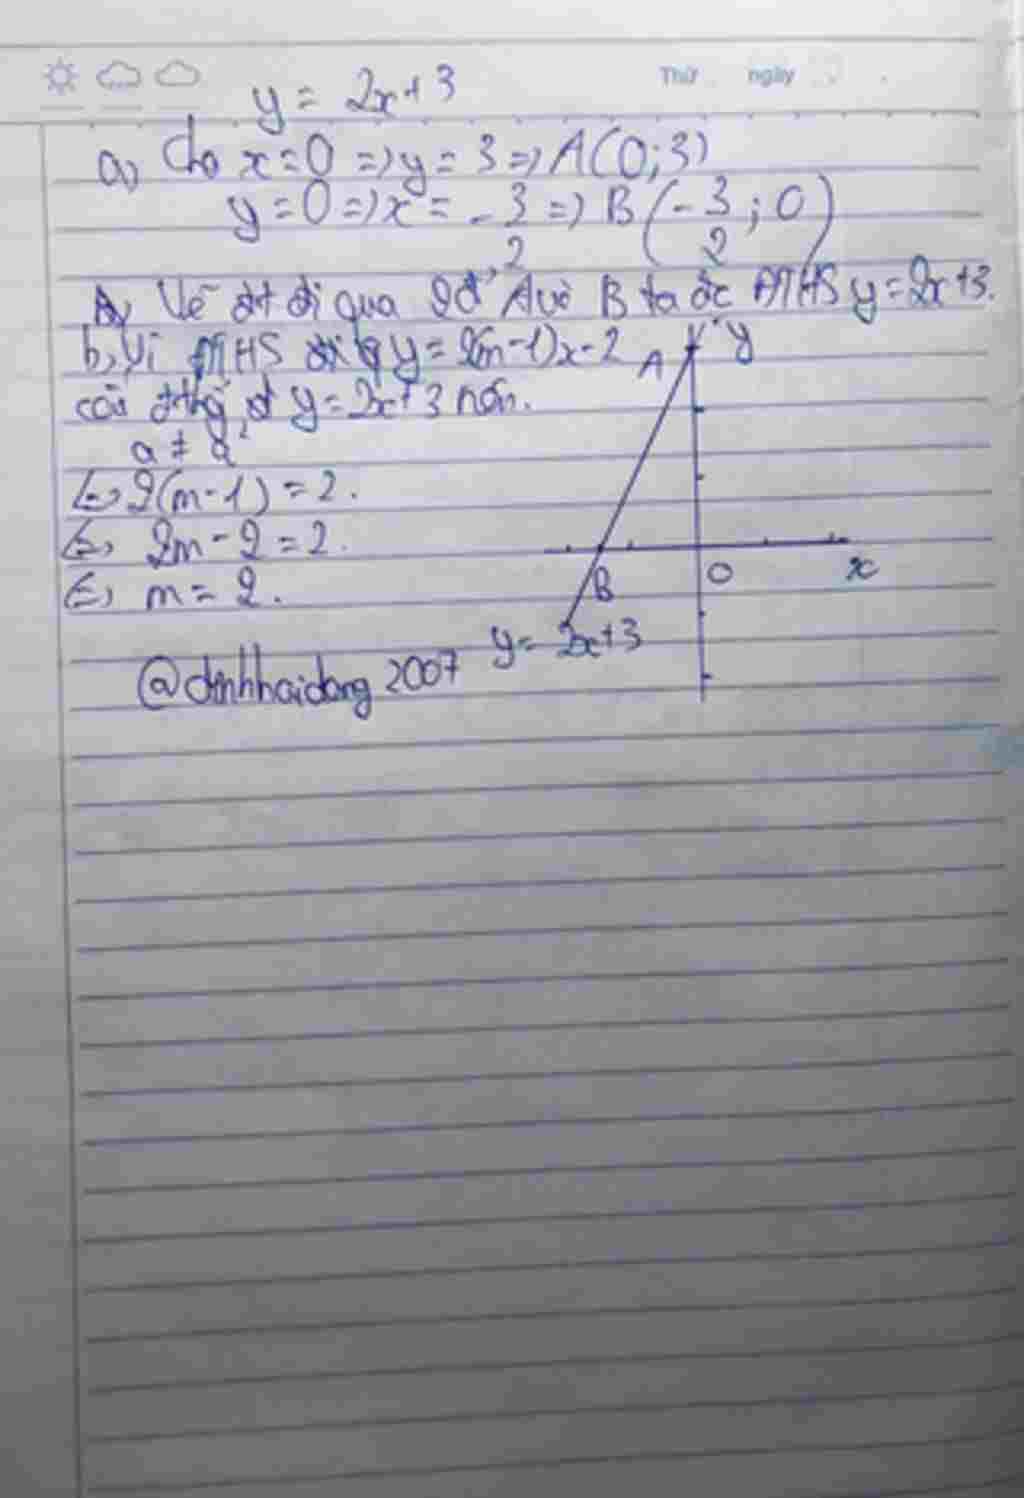 Thứ ngày
y = 2x+3
a, Cho x=0 => y = 3 => A(0;3)
y=0 => x = -3/2 => B(-3/2; 0)
Vẽ đt đi qua 2đ' A và B ta đc ĐTHS y=2x+3.
b, Vì ĐTHS y=2(m-1)x-2
y=2x+3 nên.
<=> 2(m-1) = 2.
<=> 2m-2=2.
<=> m = 2.
A y
B O x
y=2x+3
@dinhhaidang2007